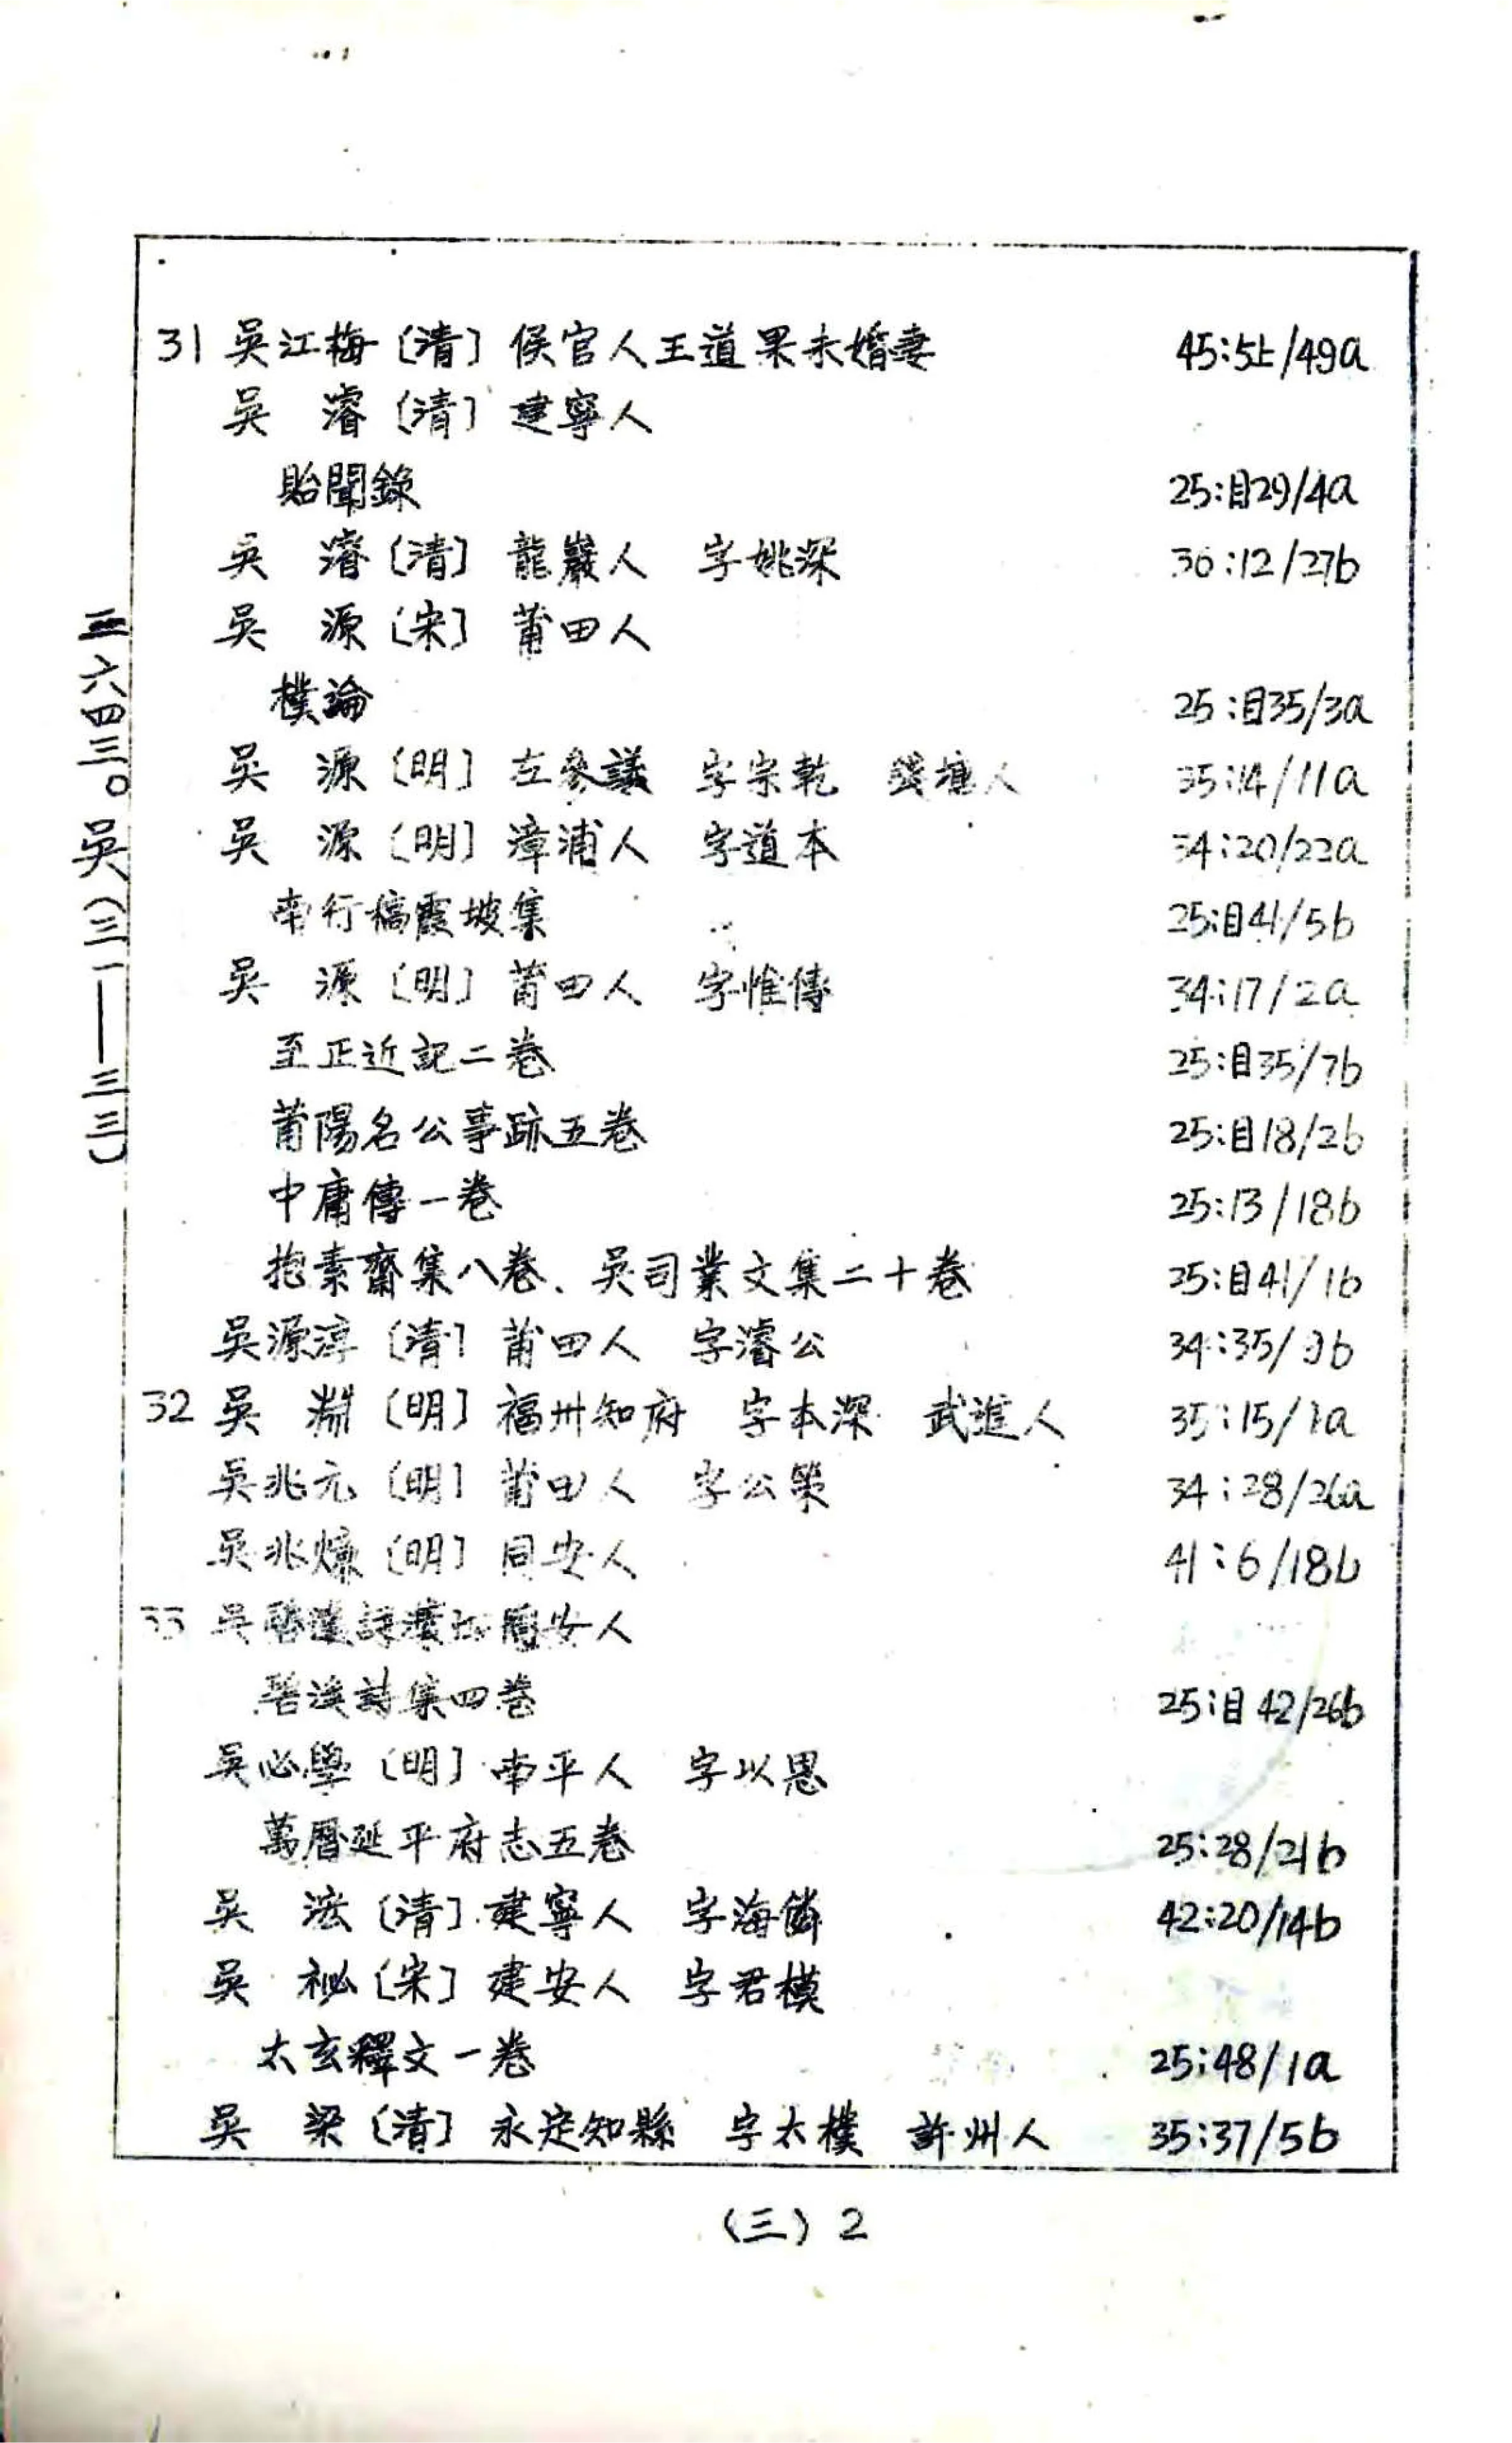 31 吳江梅〔清〕侯官人王道果未婚妻 45:5上/49a
吳 濬〔清〕建寧人
貽聞錄 25:目29/4a
吳 濬〔清〕龍巖人 字姚深 36:12/27b
吳 源〔宋〕莆田人
樸論 25:目35/3a
吳 源〔明〕左參議 字宗乾 錢塘人 35:14/11a
吳 源〔明〕漳浦人 字道本 34:20/22a
南行稿霞坡集 25:目41/5b
吳 源〔明〕莆田人 字惟傳 34:17/2a
至正近記二卷 25:目35/7b
莆陽名公事跡五卷 25:目18/2b
中庸傳一卷 25:13/18b
抱素齋集八卷、吳司業文集二十卷 25:目41/1b
吳源淳〔清〕莆田人 字濬公 34:35/9b
32 吳 淵〔明〕福州知府 字本深 武進人 35:15/1a
吳兆元〔明〕莆田人 字公策 34:28/26a
吳兆燫〔明〕同安人 41:6/18b
33 吳 安人
碧溪詩集四卷 25:目42/26b
吳必學〔明〕南平人 字以思
萬曆延平府志五卷 25:28/21b
吳 浤〔清〕建寧人 字海鱗 42:20/14b
吳 祕〔宋〕建安人 字君模
太玄釋文一卷 25:48/1a
吳 梁〔清〕永定知縣 字太樸 許州人 35:37/5b
三六四三〇吳(三一——三三)
(三) 2